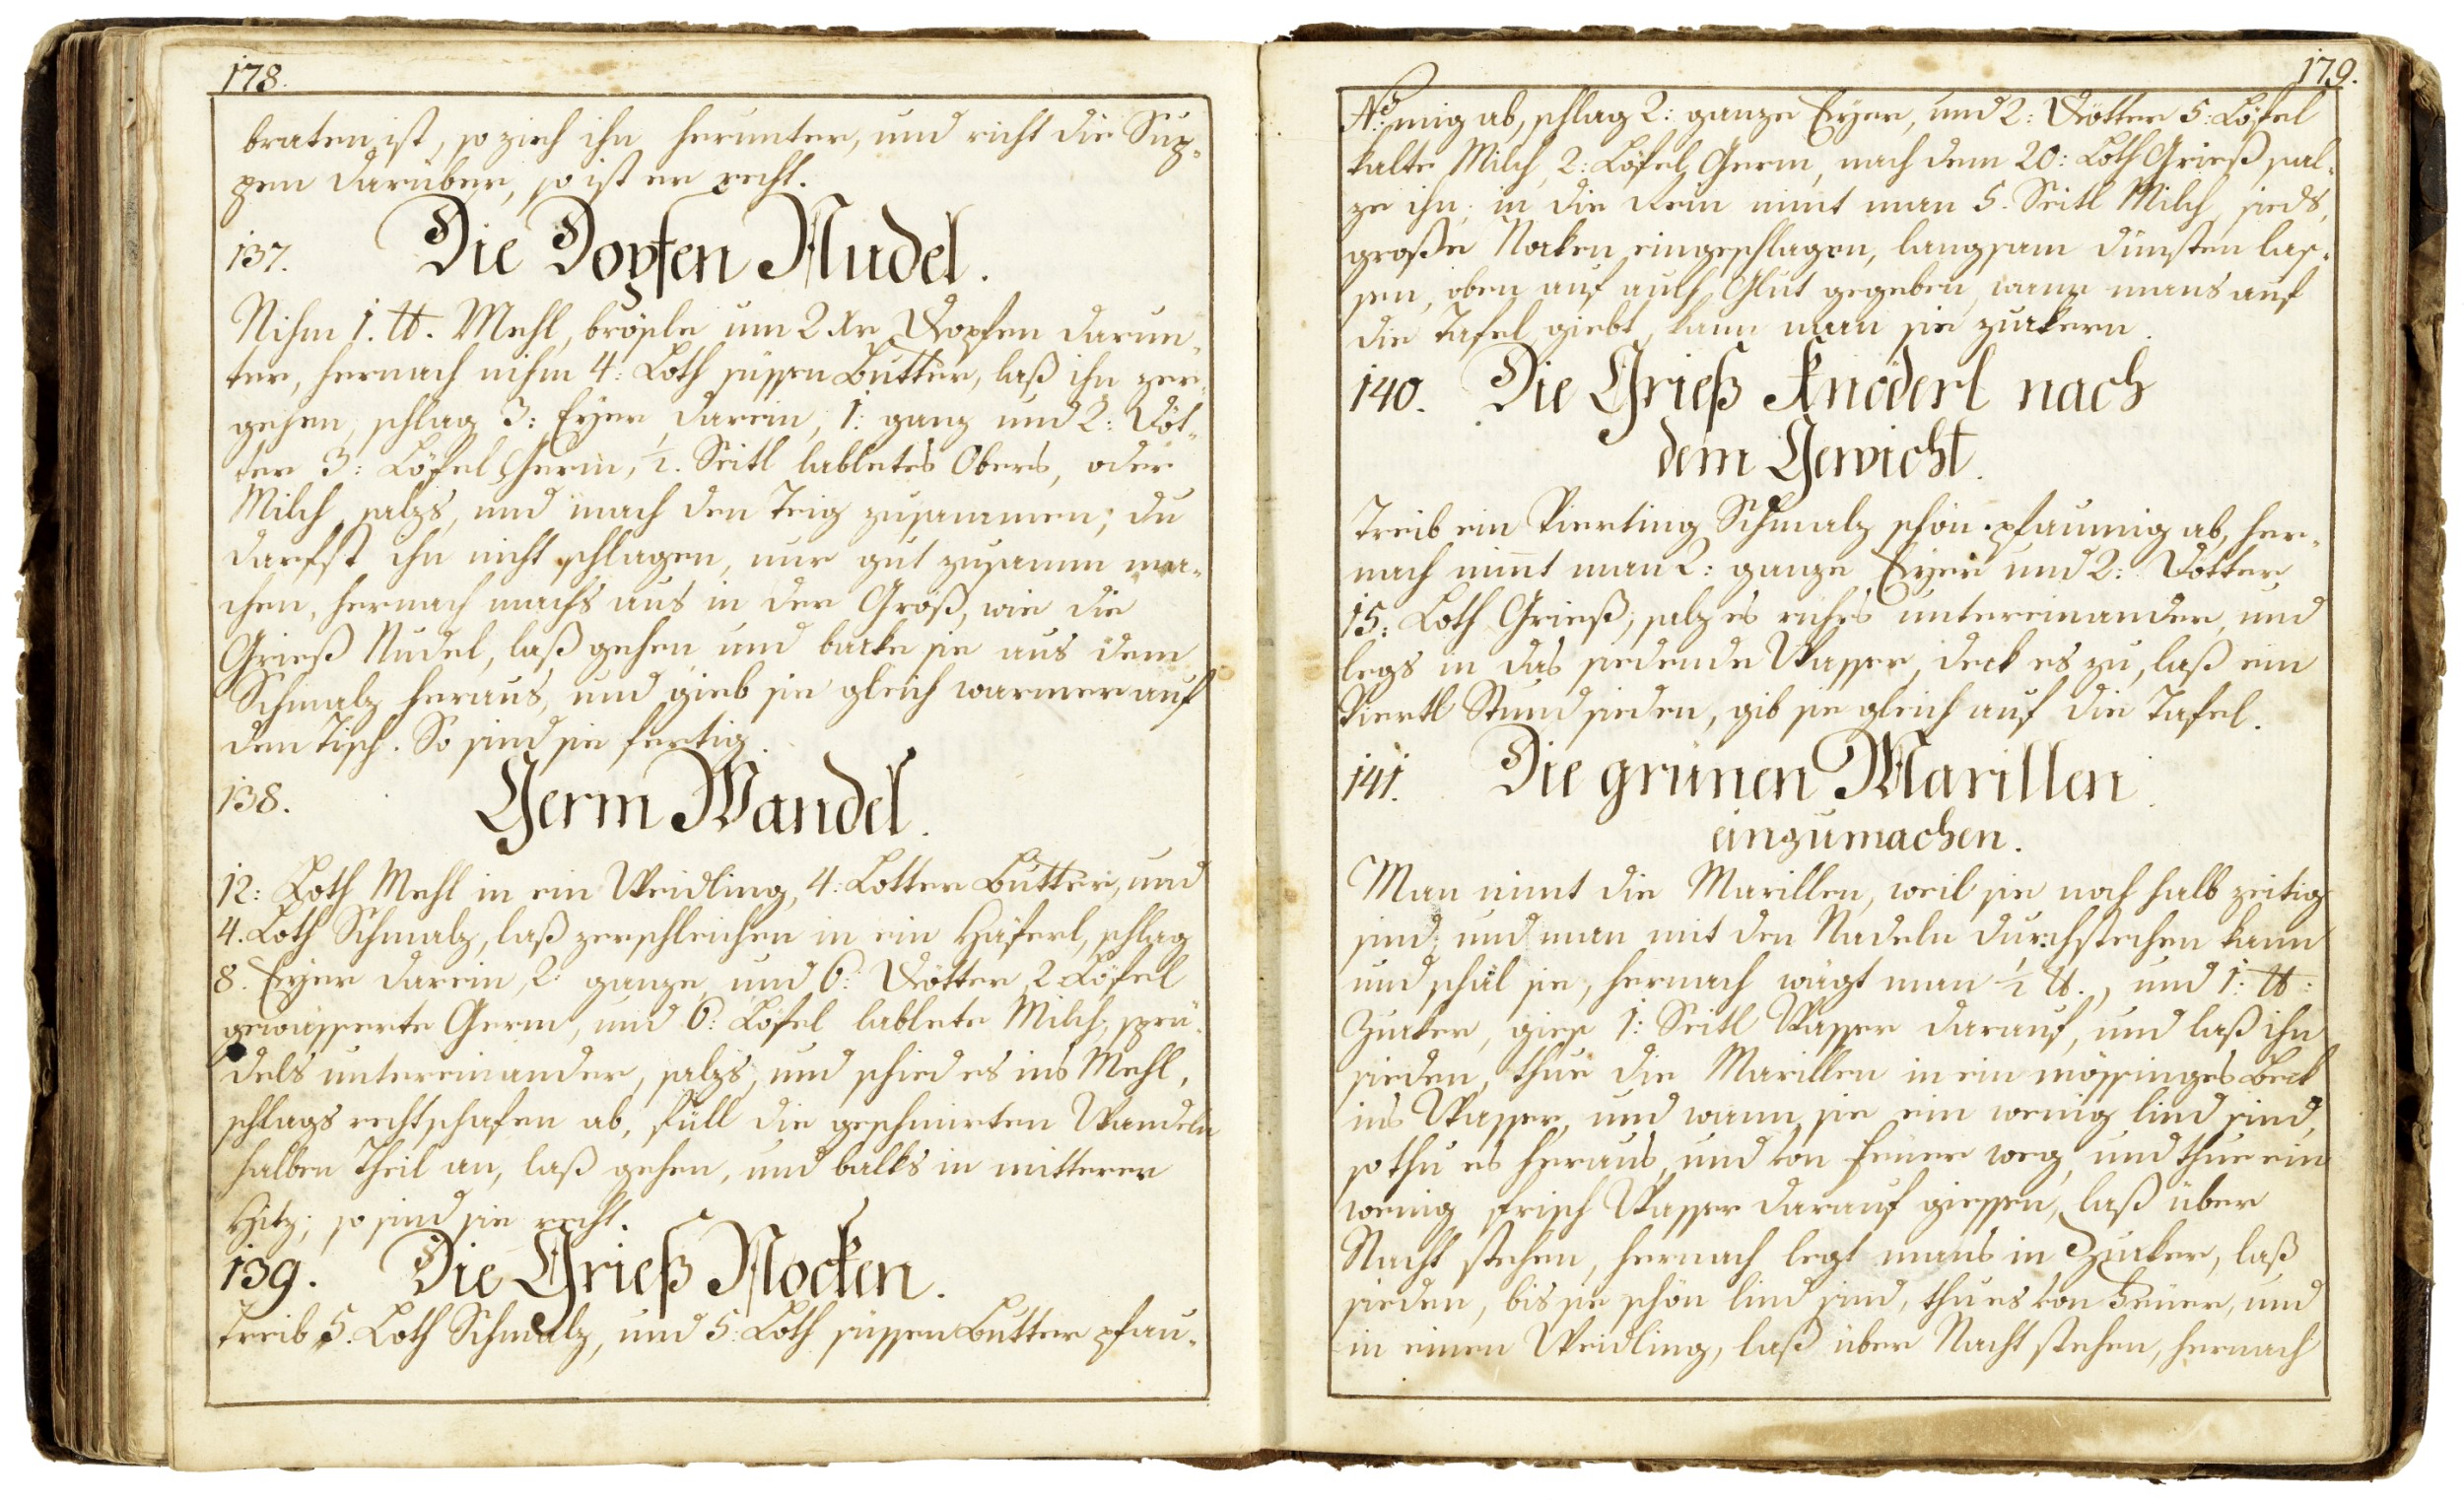 178.
braten ist, so zieh ihn herunter, und richt die Sup„
pen darüber, so ist er recht.
137. Die Dopfen Nudel.
Nihm 1. ℔. Mehl, brösle um 2 Xr Dopfen darun„
ter, hernach nihm 4: Loth süssen Butter, laß ihn zer„
gehen, schlag 3: Eyer darein, 1: ganz und 2: Döt„
ter 3: Löfel Germ, ½. Seitl labletes Obers, oder
Milch, salzs, und mach den Teig zusammen; du
darfst ihn nicht schlagen, nur gut zusamm ma„
chen, hernach machs aus in der Größ, wie die
Grieß Nudel, laß gehen und backe sie aus dem
Schmalz heraus, und gieb sie gleich warmer auf
den Tisch. So sind sie fertig.
138. Germ Wandel.
12: Loth Mehl in ein Weidling, 4: Lotter Butter, und
4. Loth Schmalz, laß zerschleichen in ein Häferl, schlag
8. Eyer darein, 2: ganze, und 6: Dötter, 2 Löfel
gewässerte Germ, und 6: Löfel lablete Milch, sprü„
dels untereinander, salzs, und schied es ins Mehl,
schlags rechtschafen ab, füll die geschmirten Wandeln
halben Theil an, laß gehen, und backs in mitterer
Hitz; so sind sie recht.
139. Die Grieß Nocken.
Treib 5. Loth Schmalz, und 5: Loth süssen Butter pfau„
179.
No: mig ab, schlag 2: ganze Eyer, und 2: Dötter 5: Löfel
kalte Milch, 2: Löfel Germ, nach dem 20: Loth Grieß sal„
ze ihn; in die Rein nimt man 5. Seitl Milch, sieds,
große Nocken eingeschlagen, langsam dünsten las„
sen, oben auf auch Glut gegeben, wann mans auf
die Tafel giebt, kann man sie zuckern.
140. Die Grieß Knöderl nach
dem Gewicht.
Treib ein Vierting Schmalz schön pfaumig ab, her„
nach nimt man 2: ganze Eyer und 2: Dotter
15: Loth Grieß; salz es rührs untereinander, und
legs in das siedende Wasser, deck es zu, laß ein
Viertl Stund sieden, gib sie gleich auf die Tafel.
141. Die grünen Marillen
einzumachen.
Man nimt die Marillen, weil sie noch halb zeitig
sind; und man mit den Nadeln durchstechen kann
und schäl sie, hernach wägt man ½ ℔., und 1: ℔:
Zucker, gies 1: Seitl Wasser darauf, und laß ihn
sieden, thue die Marillen in ein mössinges Beck
ins Wasser, und wann sie ein wenig lind sind,
so thu es heraus, und von Feuer weg, und thue ein
wenig frisch Wasser darauf giessen, laß über
Nacht stehen, hernach legt mans in Zucker, laß
sieden, bis sie schön lind sind, thu es von Feuer, und
in einen Weidling, laß über Nacht stehen, hernach